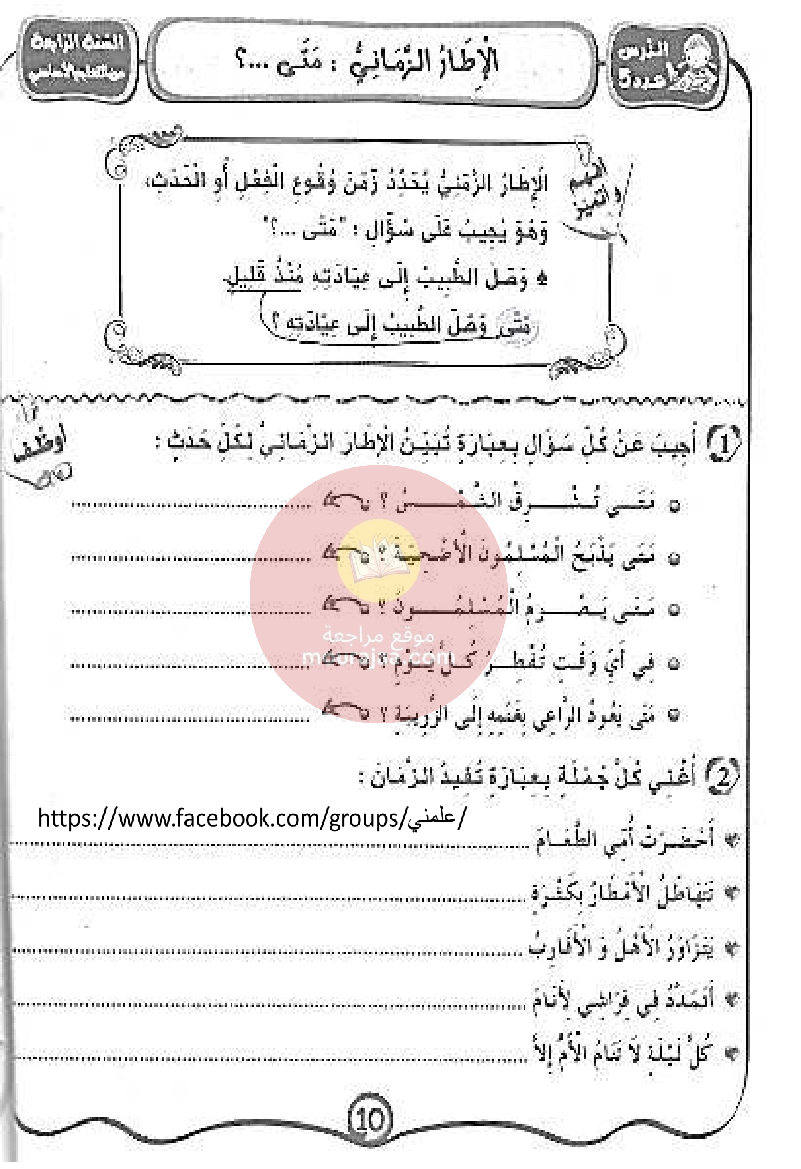 الدّرس عدد 5
الْإِطَارُ الزَّمَانِيُّ : مَتَى ...؟
السّنة الرّابعة
من التّعليم الأساسي
أفهم وأتميّز
الْإِطَارُ الزَّمَنِيُّ يُحَدِّدُ زَمَنَ وُقُوعِ الْفِعْلِ أَوِ الْحَدَثِ،
وَهُوَ يُجِيبُ عَلَى سُؤَالِ : "مَتَى ...؟"
وَصَلَ الطَّبِيبُ إِلَى عِيَادَتِهِ مُنْذُ قَلِيلٍ.
مَتَى وَصَلَ الطَّبِيبُ إِلَى عِيَادَتِهِ ؟
أوظّف
1 أُجِيبُ عَنْ كُلِّ سُؤَالٍ بِعِبَارَةٍ تُبَيِّنُ الْإِطَارَ الزَّمَانِيَّ لِكُلِّ حَدَثٍ :
مَتَـى تُشْـرِقُ الشَّمْـسُ ؟ ........
مَتَى يَذْبَحُ الْمُسْلِمُونَ الْأُضْحِيَةَ ؟ ........
مَتَى يَصُـومُ الْمُسْلِمُـونَ ؟ ........
فِي أَيِّ وَقْتٍ تُفْطِـرُ كُـلَّ يَـوْمٍ ؟ ........
مَتَى يَعُودُ الرَّاعِي بِغَنَمِهِ إِلَى الزَّرِيبَةِ ؟ ........
موقع مراجعة
2 أُغْنِي كُلَّ جُمْلَةٍ بِعِبَارَةٍ تُفِيدُ الزَّمَانَ :
https://www.facebook.com/groups/علمني/
أَحْضَرَتْ أُمِّي الطَّعَـامَ ........
تَتَهَاطَلُ الْأَمْطَارُ بِكَثْرَةٍ ........
يَتَزَاوَرُ الْأَهْلُ وَ الْأَقَارِبُ ........
أَتَمَدَّدُ فِي فِرَاشِي لِأَنَامَ ........
كُلَّ لَيْلَةٍ لَا تَنَامُ الْأُمُّ إِلَّا ........
10